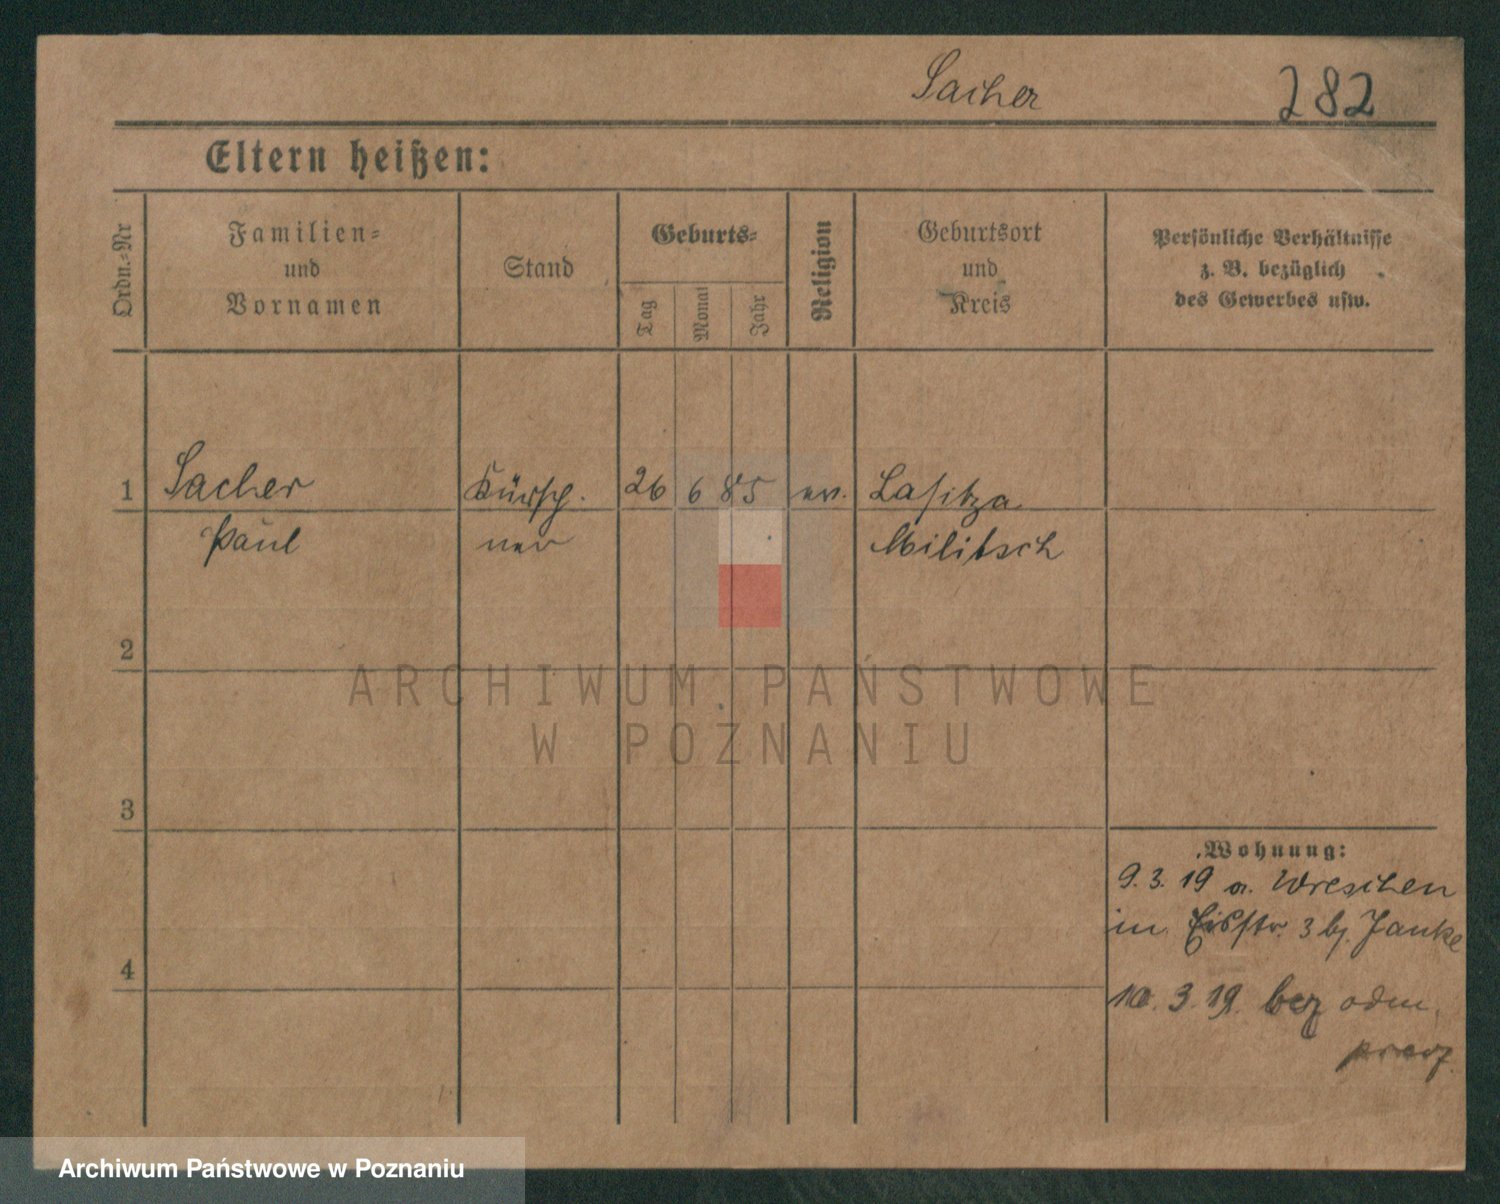 Sacher 282
Eltern heißen:
Ordn.-Nr
Familien-
und
Vornamen
Stand
Geburts-
Tag
Monat
Jahr
Religion
Geburtsort
und
Kreis
Persönliche Verhältnisse
z. B. bezüglich
des Gewerbes usw.
1 Sacher Kürsch- 26 6 85 ev. Lasitza
Paul ner Militsch
2
3
4
Wohnung:
9. 3. 19 a. Wreschen
in Eisstr. 3 bj. Janke
10. 3. 19.
ARCHIWUM PAŃSTWOWE
W POZNANIU
Archiwum Państwowe w Poznaniu